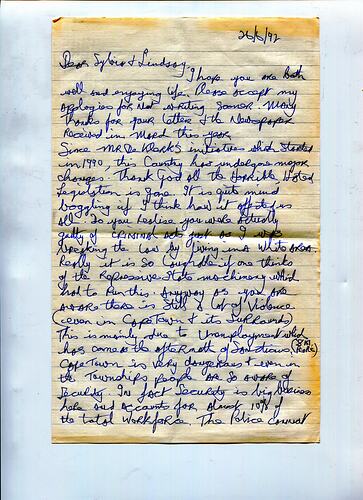 26/6/92
Dear Sylvia & Lindsay
I hope you are both
well and enjoying life. Please accept my
apologies for not writing sooner. Many
thanks for your letter & the Newspaper
received in March this year
Since MR De Klerk's initiatives which started
in 1990, this Country has undergone major
changes. Thank God all the Horrible Hated
legislation is gone. It is quite mind
boggling if I think how it affected us
all. Do you realise you were actually
guilty of CRIMINAL acts just as I was
breaking the law by living in a White Area.
Really it is so laughable if one thinks
of the Repressive State machinery which
had to run this. Anyway as you are
aware there is still a lot of Violence
(even in Cape Town & its Surrounds)
This is mainly due to Unemployment which
has come in the aftermath of Sanctions
Cape Town is very dangerous & even in
the Townships people are so aware of
Security. In fact Security is big business
here and accounts for almost 10% of
the total Workforce. The Police cannot